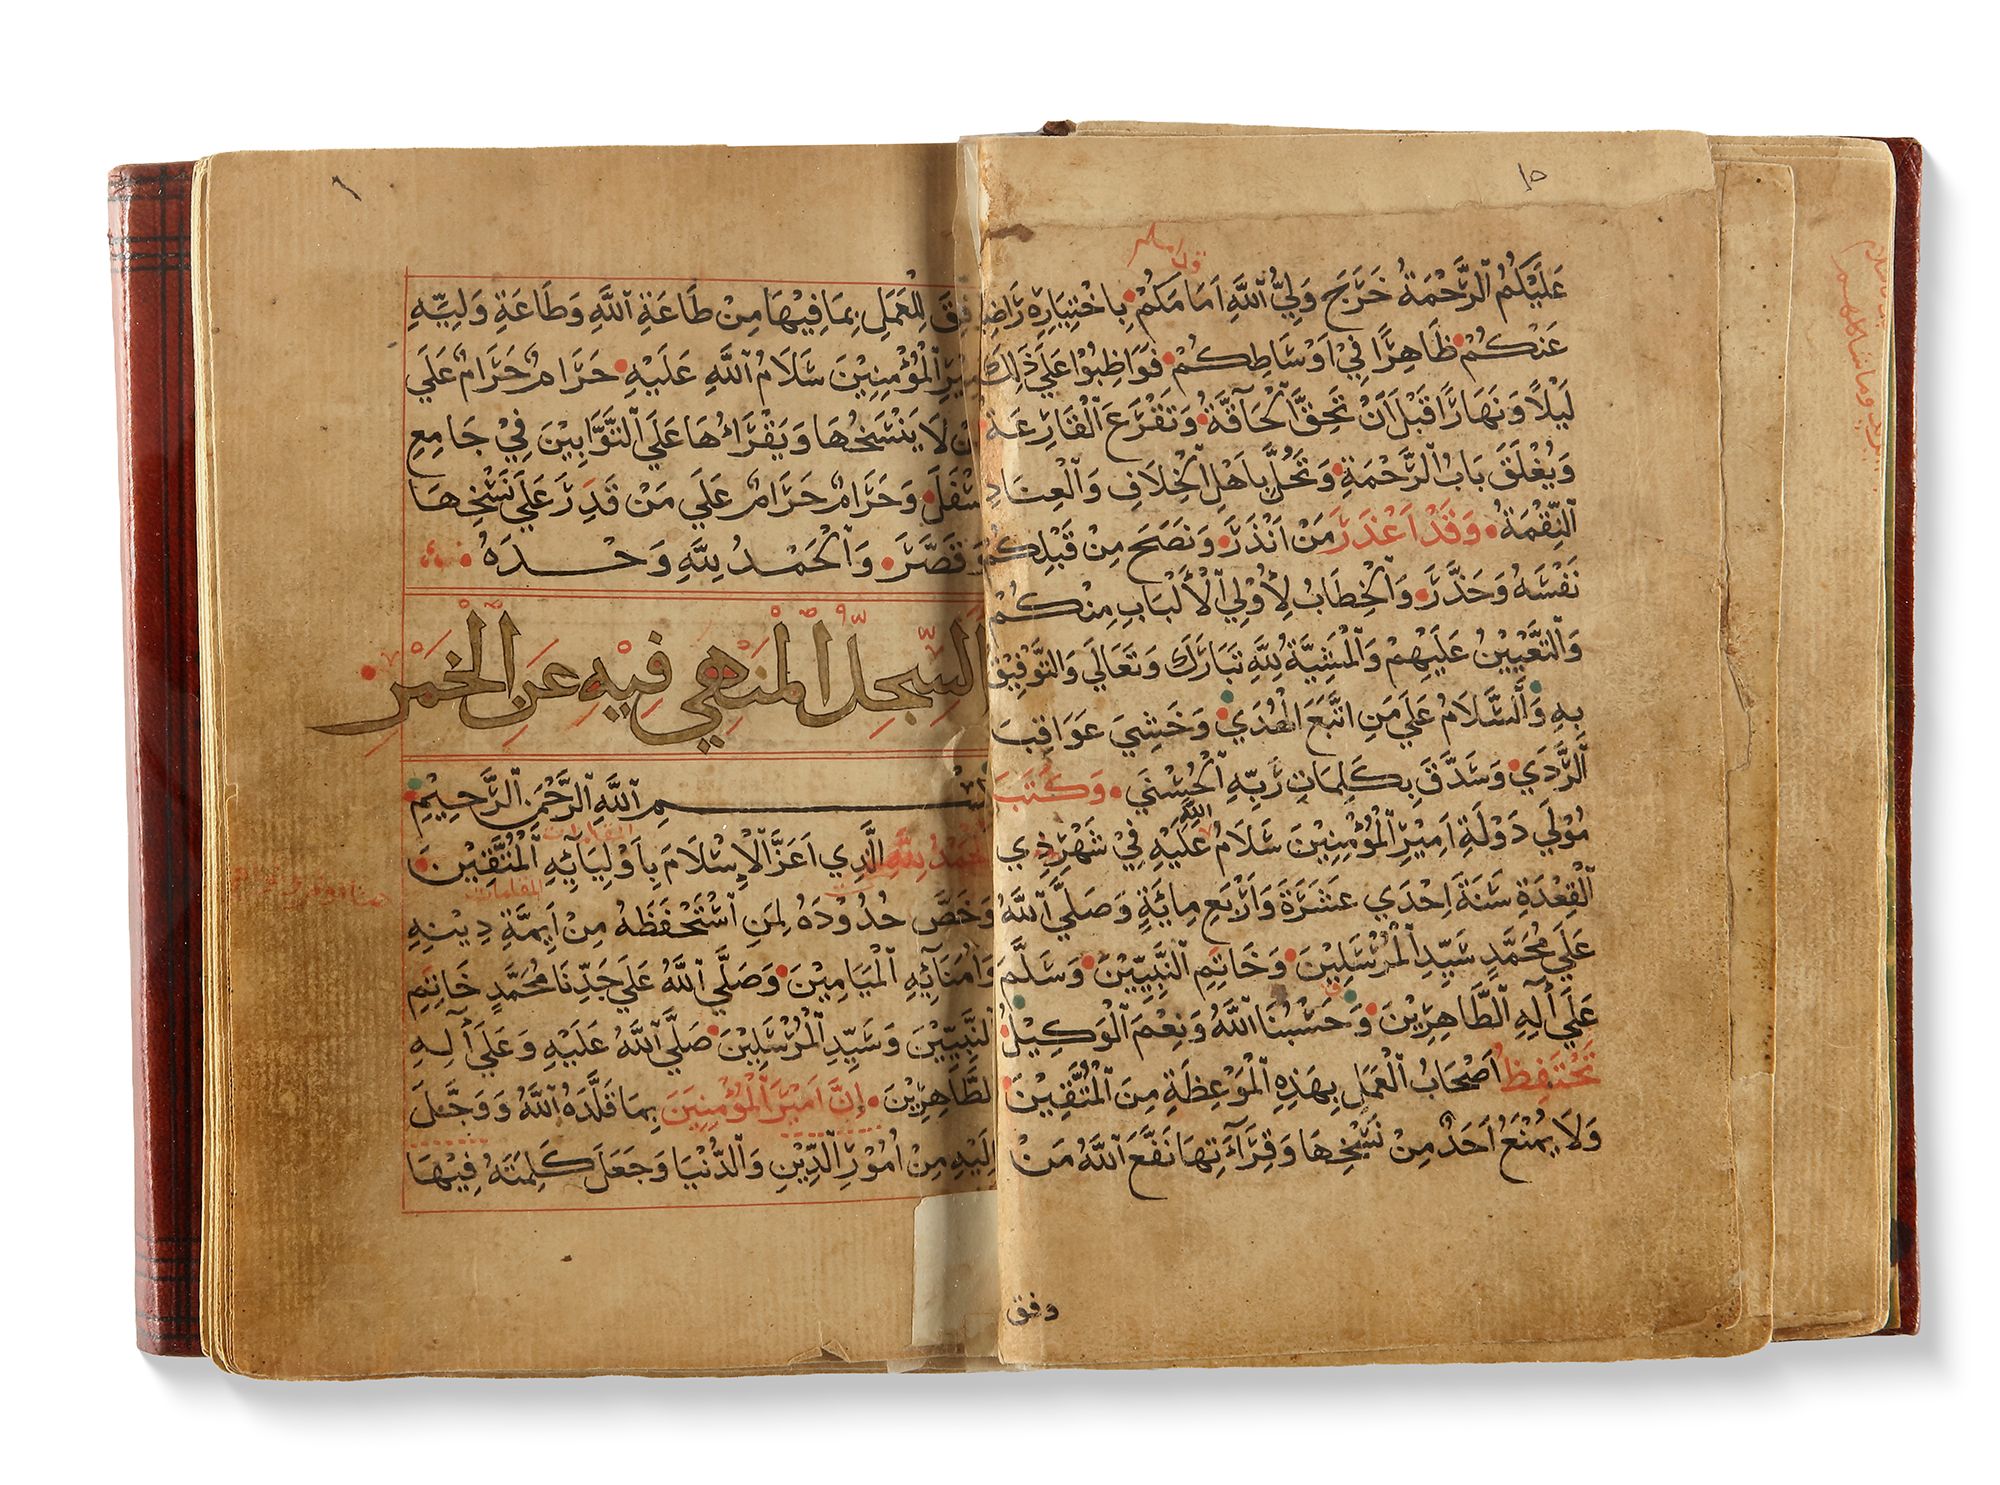 ١٥
عَلَيْكُمُ الرَّحْمَةُ خَرَجَ وَلِيُّ اللَّهِ اِمَامَكُمْ بِاخْتِيَارِهِ رَاضِيًا
عَنْكُمْ ظَاهِرًا فِيْ اَوْسَاطِكُمْ فَوَاظِبُوْا عَلَي ذٰلِكَ
لَيْلًا وَنَهَارًا قَبْلَ اَنْ تَحِقَّ الْحَاقَّةُ وَتَقْرَعَ الْقَارِعَةُ
وَيُغْلَقَ بَابُ الرَّحْمَةِ وَتَحُلَّ بِاَهْلِ الْخِلَافِ وَالْعِنَادِ
النِّقْمَةُ وَقَدْ اَعْذَرَ مَنْ اَنْذَرَ وَنَصَحَ مِنْ قَبْلِكُمْ
نَفْسَهُ وَحَذَّرَ وَالْخِطَابُ لِاُوْلِي الْاَلْبَابِ مِنْكُمْ
وَالتَّعْيِيْنُ عَلَيْهِمْ وَالْمَشِيَّةُ لِلّٰهِ تَبَارَكَ وَتَعَالَي وَالتَّوْفِيْقُ
بِهِ وَالسَّلَامُ عَلَي مَنِ اتَّبَعَ الْهُدَي وَخَشِيَ عَوَاقِبَ
الرَّدَي وَسَدَّقَ بِكَلِمَاتِ رَبِّهِ الْحُسْنَي وَكَتَبَ
مَوْلَي دَوْلَةِ اَمِيْرِ الْمُؤْمِنِيْنَ سَلَامُ اللّٰهِ عَلَيْهِ فِيْ شَهْرِ ذِي
الْقِعْدَةِ سَنَةَ اِحْدَي عَشَرَةَ وَاَرْبَعِ مِائَةٍ وَصَلَّي اللّٰهُ
عَلَي مُحَمَّدٍ سَيِّدِ الْمُرْسَلِيْنَ وَخَاتِمِ النَّبِيِّيْنَ وَسَلَّمَ
عَلَي اٰلِهِ الطَّاهِرِيْنَ وَحَسْبُنَا اللّٰهُ وَنِعْمَ الْوَكِيْلُ
تَحْتَفِظُ اَصْحَابُ الْعَمَلِ بِهَذِهِ الْمَوْعِظَةِ مِنَ الْمُتَّقِيْنَ
وَلَا يُمْنَعُ اَحَدٌ مِنْ نَسْخِهَا وَقِرَآءَتِهَا نَفَعَ اللّٰهُ مَنْ
وفق
فِّقَ لِلْعَمَلِ بِمَا فِيْهَا مِنْ طَاعَةِ اللّٰهِ وَطَاعَةِ وَلِيِّهِ
مِيْرِ الْمُؤْمِنِيْنَ سَلَامُ اللّٰهِ عَلَيْهِ حَرَامٌ حَرَامٌ عَلَي
نْ لَا يَنْسَخُهَا وَيَقْرَاُهَا عَلَي التَّوَّابِيْنَ فِيْ جَامِعِ
سْفَلَ وَحَرَامٌ حَرَامٌ عَلَي مَنْ قَدِرَ عَلَي نَسْخِهَا
وَقَصَّرَ وَالْحَمْدُ لِلّٰهِ وَحْدَهُ
السِّجِلُّ الْمَنْهِي فِيْهِ عَنِ الْخَمْرِ
بِسْمِ اللّٰهِ الرَّحْمَنِ الرَّحِيْمِ
الْحَمْدُ لِلّٰهِ الَّذِي اَعَزَّ الْاِسْلَامَ بِاَوْلِيَائِهِ الْمُتَّقِيْنَ
وَخَصَّ حُدُوْدَهُ لِمَنِ اسْتَحْفَظَهُ مِنْ اَئِمَّةِ دِيْنِهِ
وَاُمَنَائِهِ الْمَيَامِيْنَ وَصَلَّي اللّٰهُ عَلَي جَدِّنَا مُحَمَّدٍ خَاتِمِ
النَّبِيِّيْنَ وَسَيِّدِ الْمُرْسَلِيْنَ صَلَّي اللّٰهُ عَلَيْهِ وَعَلَي اٰلِهِ
الطَّاهِرِيْنَ اِنَّ اَمِيْرَ الْمُؤْمِنِيْنَ بِمَا قَلَّدَهُ اللّٰهُ وَوَجَّعَلَ
اِلَيْهِ مِنْ اُمُوْرِ الدِّيْنِ وَالدُّنْيَا وَجَعَلَ كَلِمَتَهُ فِيْهَا